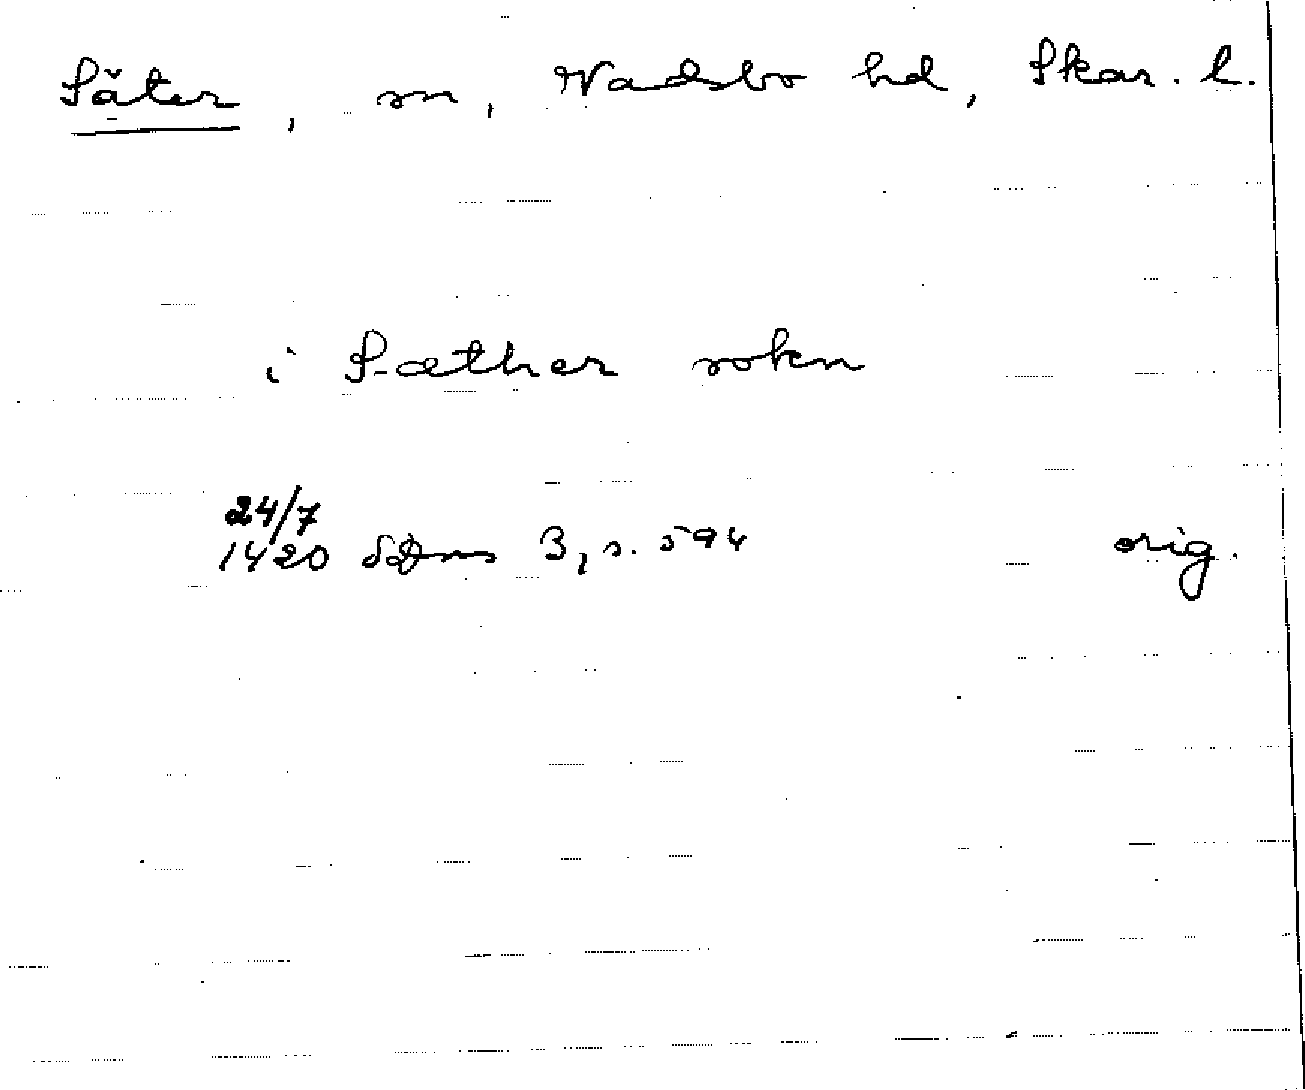 Säter, sn, Wadsbo hd, Skar. l.
i Sæther sokn
24/7
1420 SDns 3, s. 594
orig.